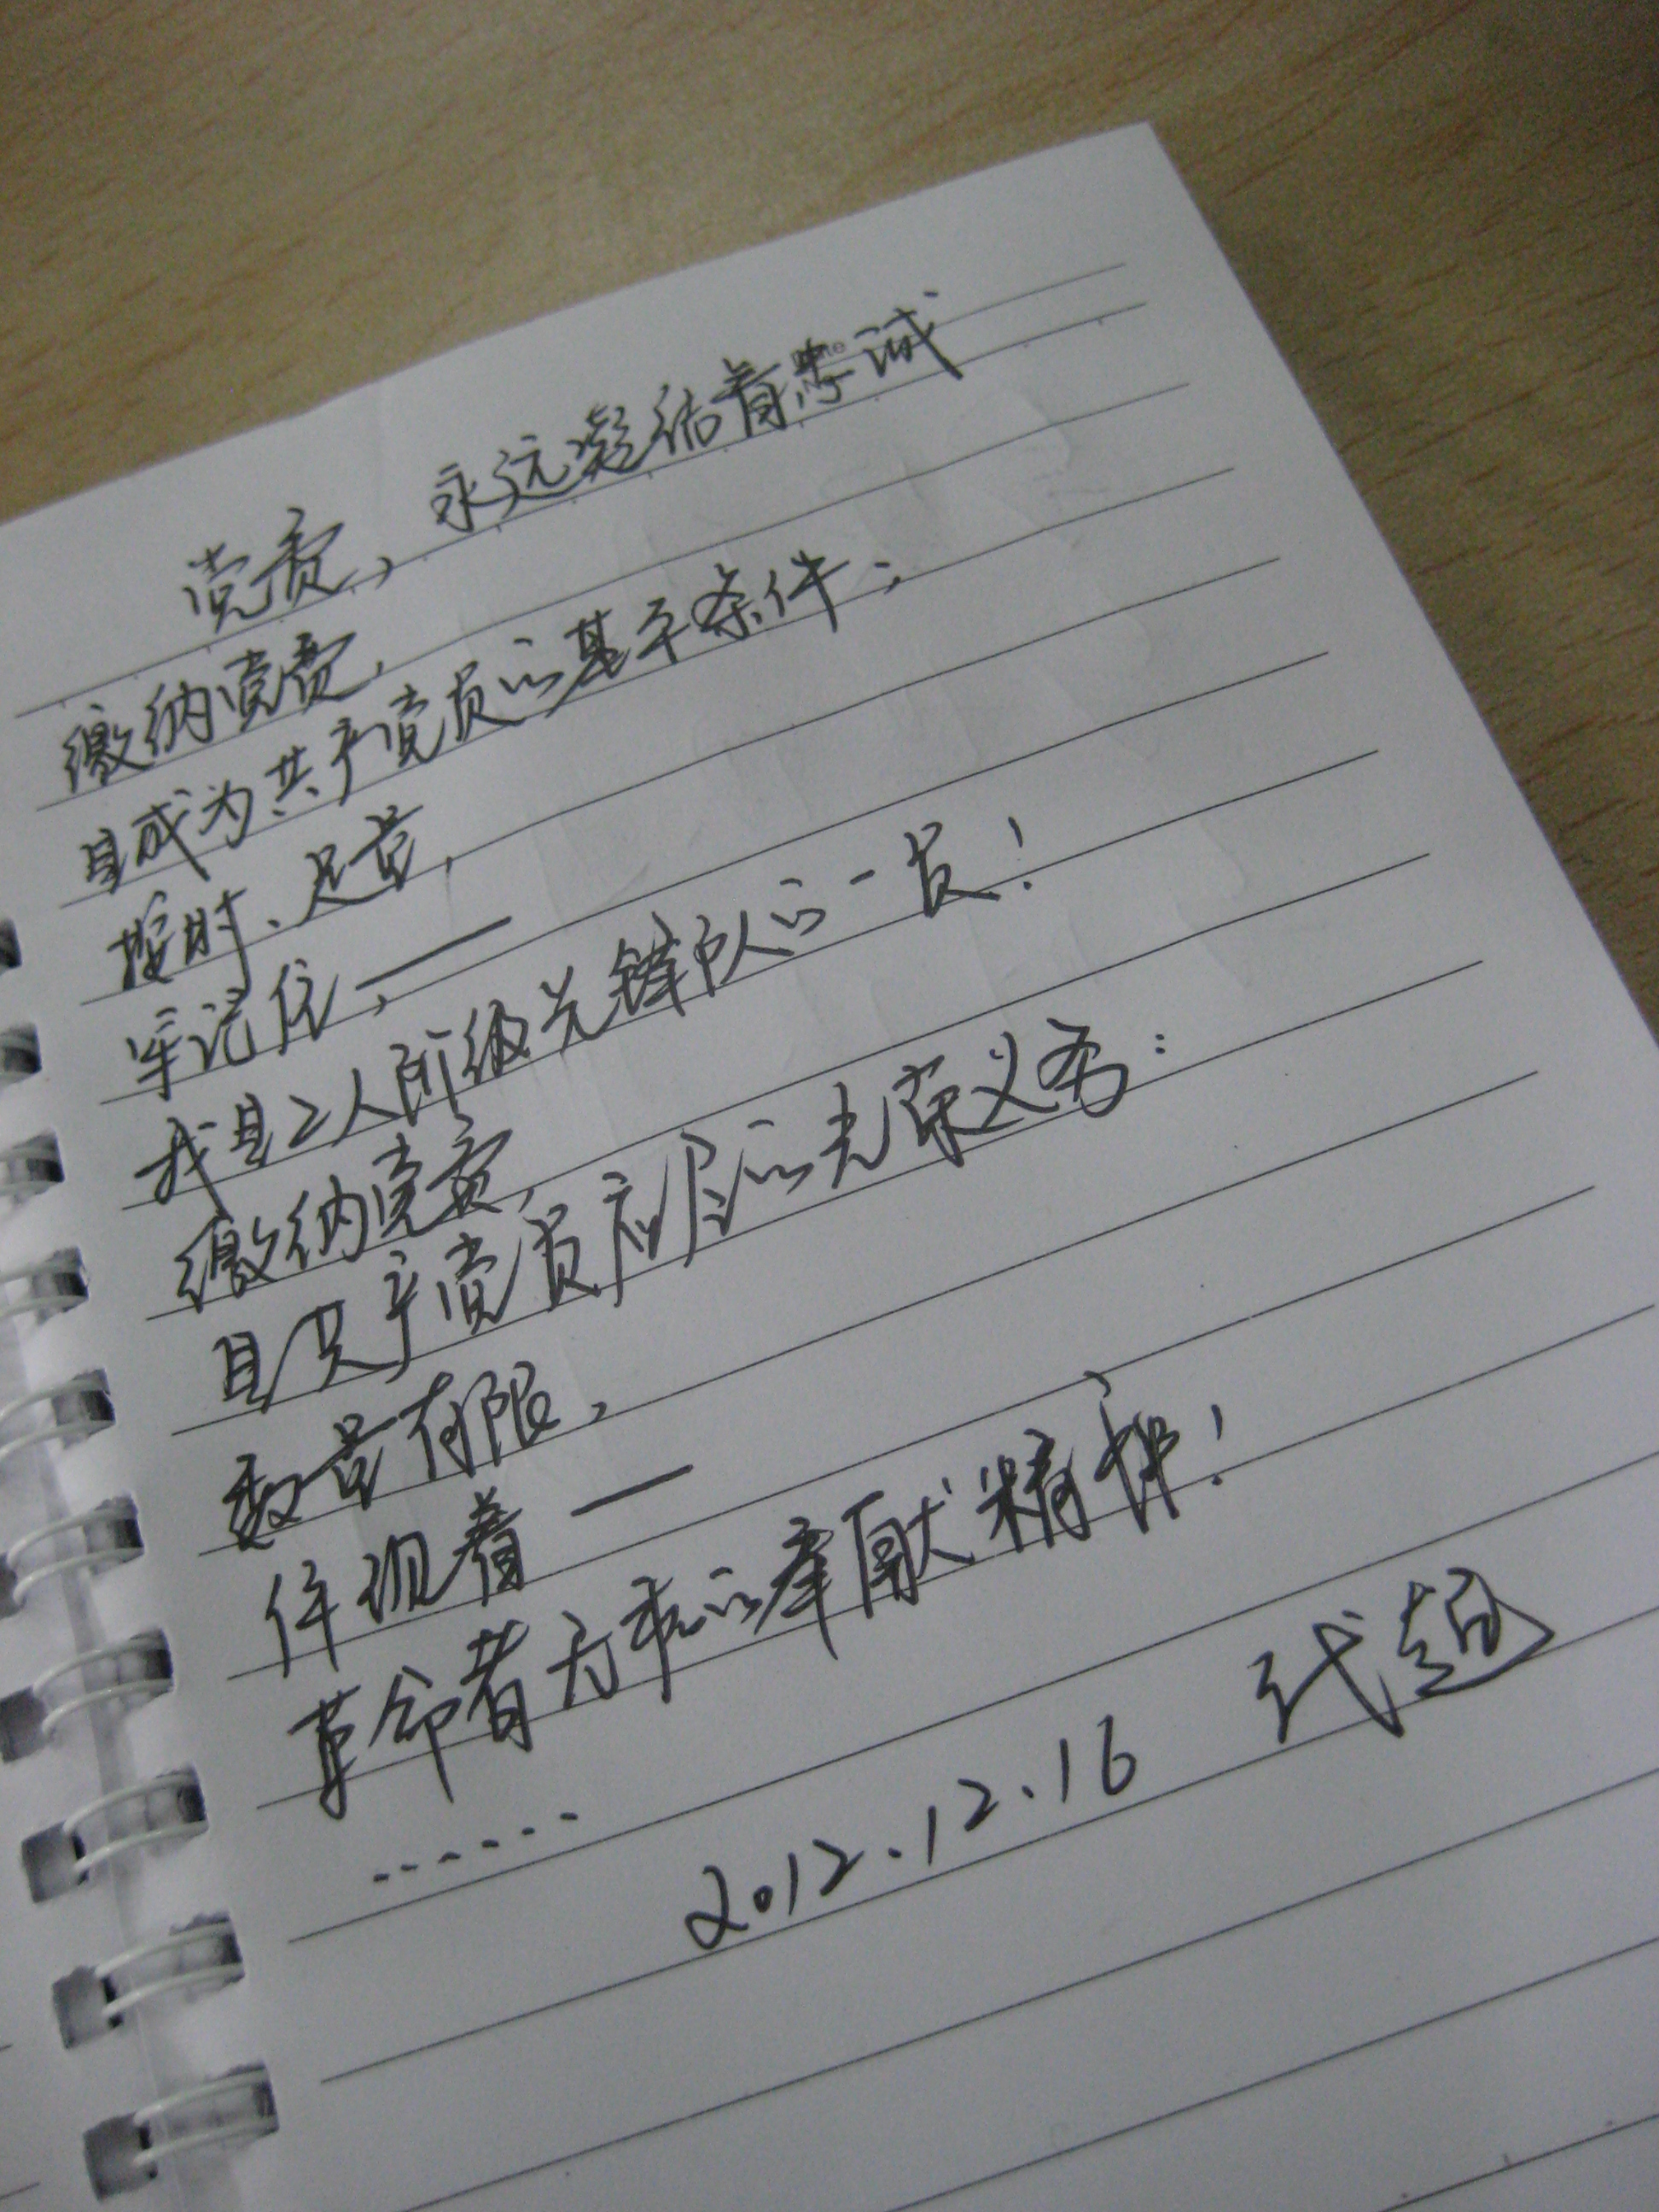 党费，永远凝结着忠诚
缴纳党费，
是成为共产党员的基本条件；
按时、足量，
牢记住，——
我是工人阶级先锋队的一员！
缴纳党费，
是共产党员应尽的光荣义务：
数量有限，
体现着——
革命者无求的奉献精神！
……
2012.12.16 代超